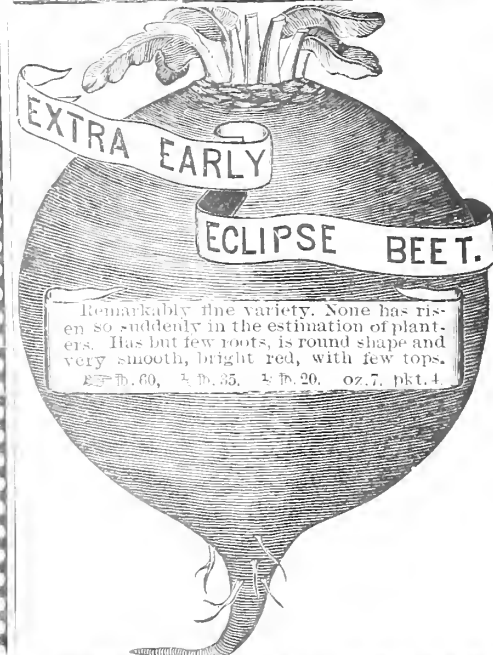 EXTRA EARLY
ECLIPSE BEET.
Remarkably fine variety. None has ris-
en so suddenly in the estimation of plant-
ers. Has but few roots, is round shape and
very smooth, bright red, with few tops.
☞ ℔. 60, ½ ℔. 35. ¼ ℔. 20. oz. 7. pkt. 4.